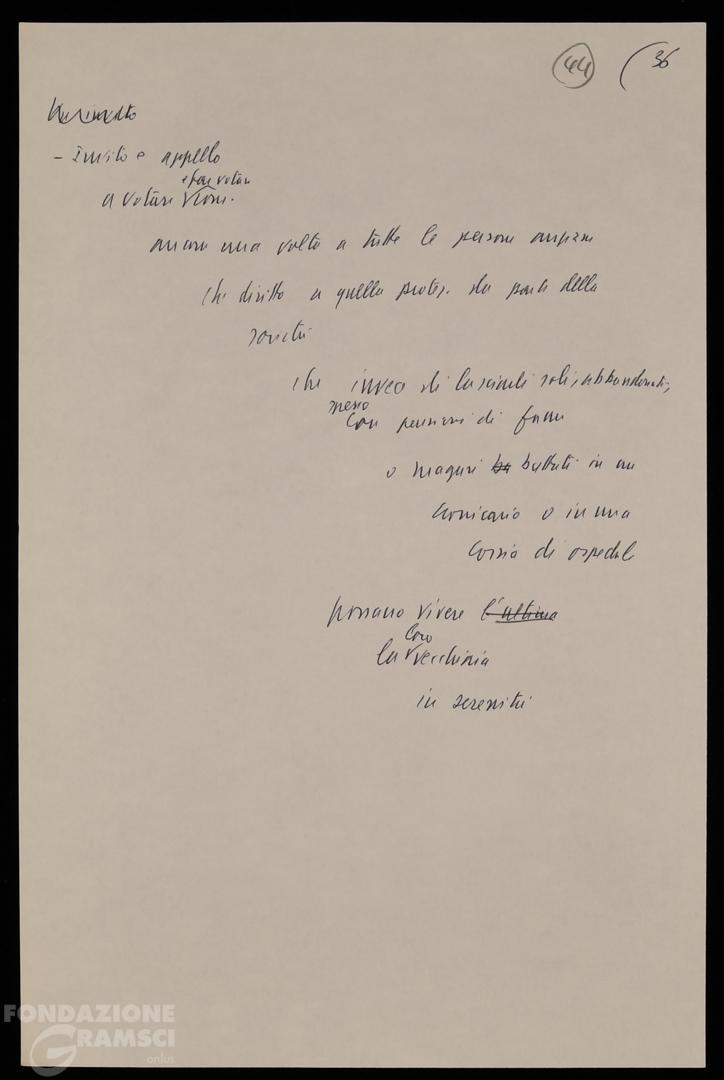 44 (36
- Invito e appello
e far votare
a votare
ancora una volta a tutte le persone anziane
che diritto a quella protez. da parte della
società
che invece di lasciarli soli, abbandonati,
spesso
con pensioni di fame
o magari ba buttati in un
cronicario o in una
corsia di ospedale
possano vivere l'ultima
loro
la vecchiaia
in serenità
FONDAZIONE
GRAMSCI
onlus